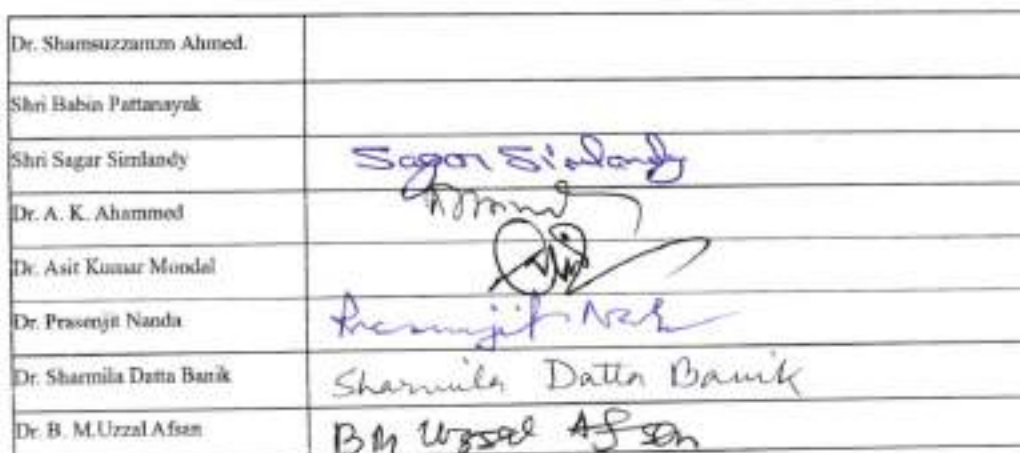 Dr. Shamsuzzamm Ahmed.
Shri Babin Pattanayak
Shri Sagar Simlandy Sagar Simlandy
Dr. A. K. Ahammed
Dr. Asit Kumar Mondal
Dr. Prasenjit Nanda Prasenjit
Dr. Sharmila Datta Banik Sharmila Datta Banik
Dr. B. M.Uzzal Afsan BM Uzzal Afsan